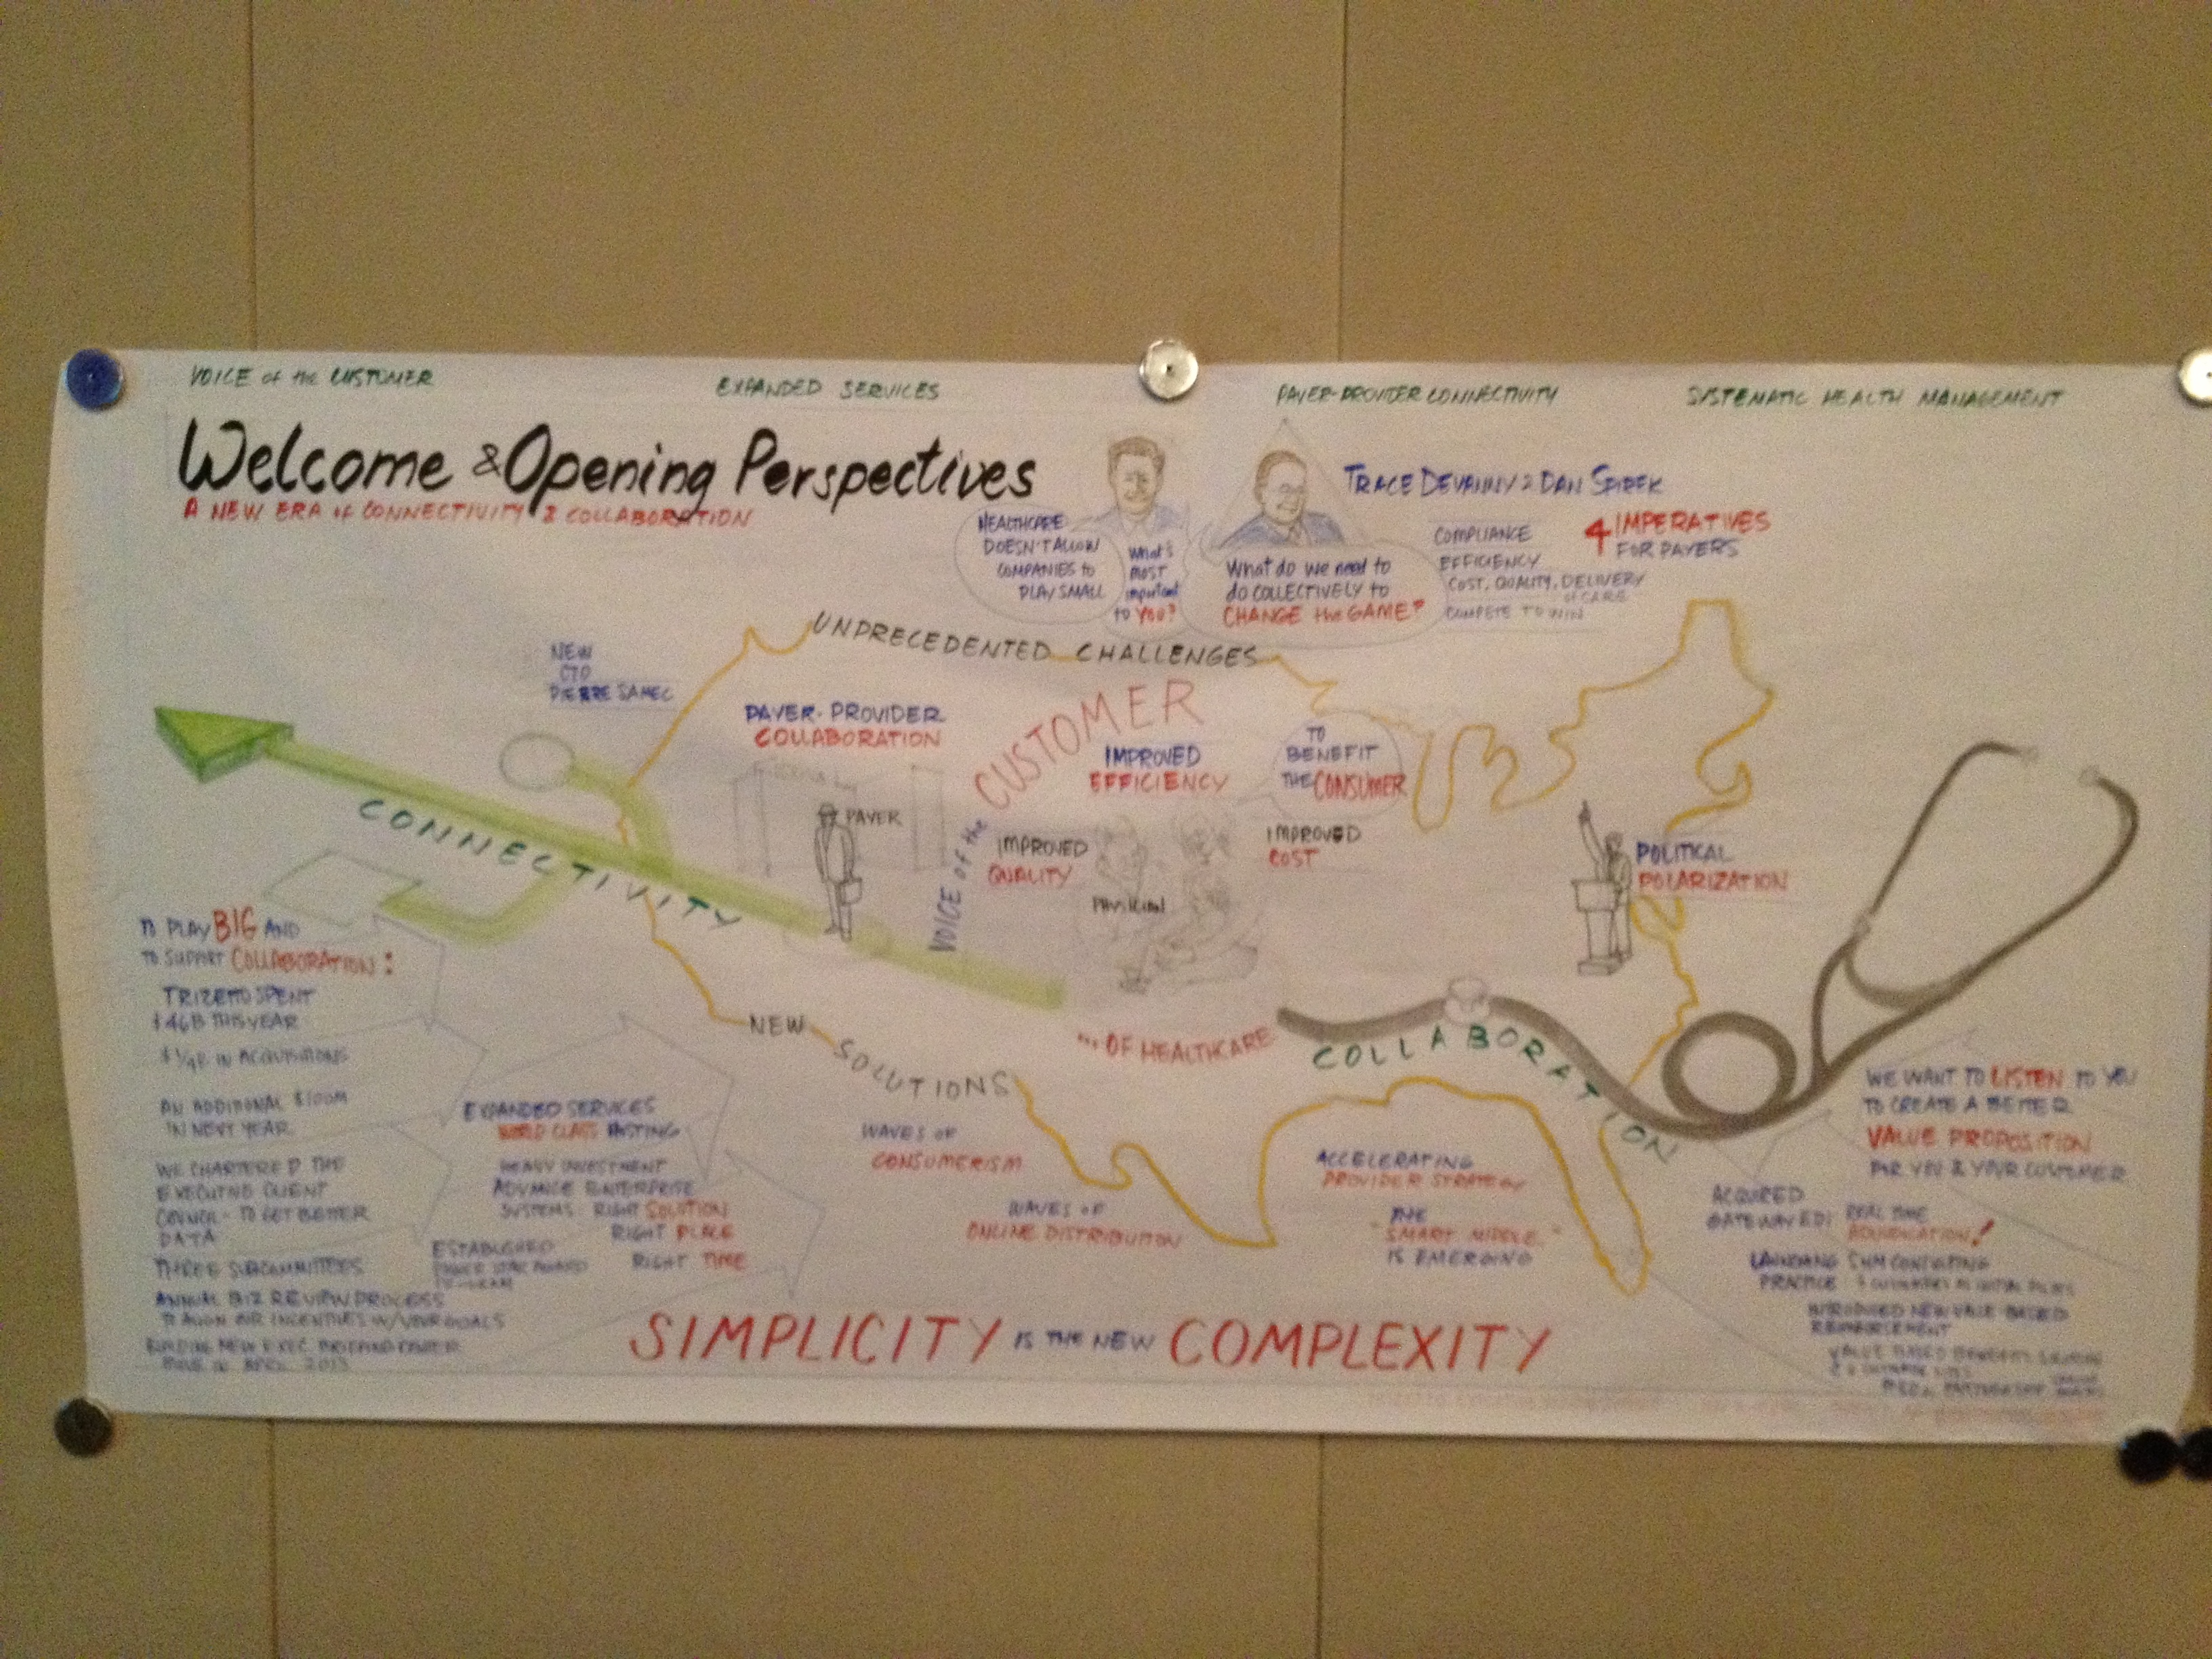 VOICE of the CUSTOMER
EXPANDED SERVICES
PAYER-PROVIDER CONNECTIVITY
SYSTEMATIC HEALTH MANAGEMENT
Welcome & Opening Perspectives
A NEW ERA of CONNECTIVITY & COLLABORATION
HEALTHCARE
DOESN'T ALLOW
COMPANIES to
PLAY SMALL
What's
most
important
to YOU?
What do we need to
do COLLECTIVELY to
CHANGE the GAME?
TRACE DEVANNY & DAN SPIREK
COMPLIANCE
EFFICIENCY
COST, QUALITY, DELIVERY
of CARE
COMPETE TO WIN
4 IMPERATIVES
FOR PAYERS
UNPRECEDENTED CHALLENGES
NEW
CTO
PIERRE SAMEC
PAYER-PROVIDER
COLLABORATION
PAYER
VOICE of the CUSTOMER
IMPROVED
EFFICIENCY
TO
BENEFIT
THE CONSUMER
IMPROVED
QUALITY
IMPROVED
COST
POLITICAL
POLARIZATION
CONNECTIVITY
NEW SOLUTIONS
... OF HEALTHCARE
COLLABORATION
TO PLAY BIG AND
TO SUPPORT COLLABORATION:
TRIZETTO SPENT
THIS YEAR
IN ACQUISITIONS
AN ADDITIONAL $100M
IN NEXT YEAR
WE CHARTERED THE
EXECUTIVE CLIENT
COUNCIL - TO GET BETTER
DATA
THREE SUBCOMMITTEES
ANNUAL BIZ REVIEW PROCESS
TO ALIGN OUR INCENTIVES W/YOUR GOALS
BUILDING NEW EXEC. BRIEFING CENTER
APRIL 2013
EXPANDED SERVICES
WORLD CLASS HOSTING
HEAVY INVESTMENT
ADVANCE ENTERPRISE
SYSTEMS: RIGHT SOLUTION
RIGHT PLACE
RIGHT TIME
ESTABLISHED
WAVES OF
CONSUMERISM
WAVES OF
ONLINE DISTRIBUTION
ACCELERATING
PROVIDER STRATEGY
THE
"SMART MIDDLE"
IS EMERGING
WE WANT TO LISTEN TO YOU
TO CREATE A BETTER
VALUE PROPOSITION
FOR YOU & YOUR CUSTOMER
ACQUIRED
GATEWAY EDI
REAL TIME
ADJUDICATION!
LAUNCHING SHM CONSULTING
PRACTICE
INTRODUCED NEW VALUE-BASED
REIMBURSEMENT
VALUE BASED BENEFITS
SIMPLICITY IS THE NEW COMPLEXITY